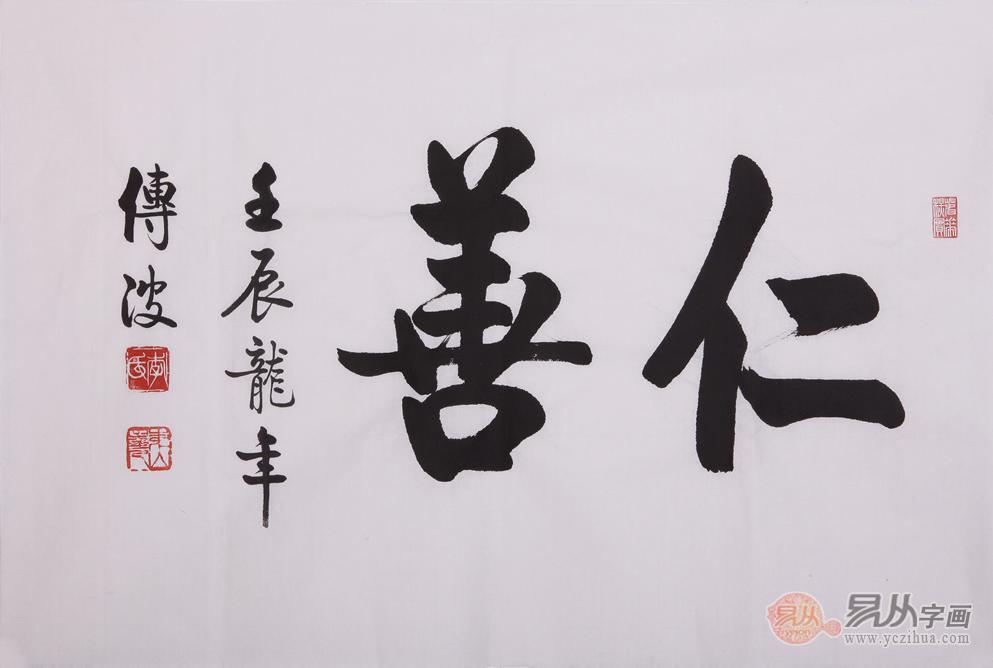 仁善
壬辰龍年
傳波
易从
易从字画
www.yczihua.com